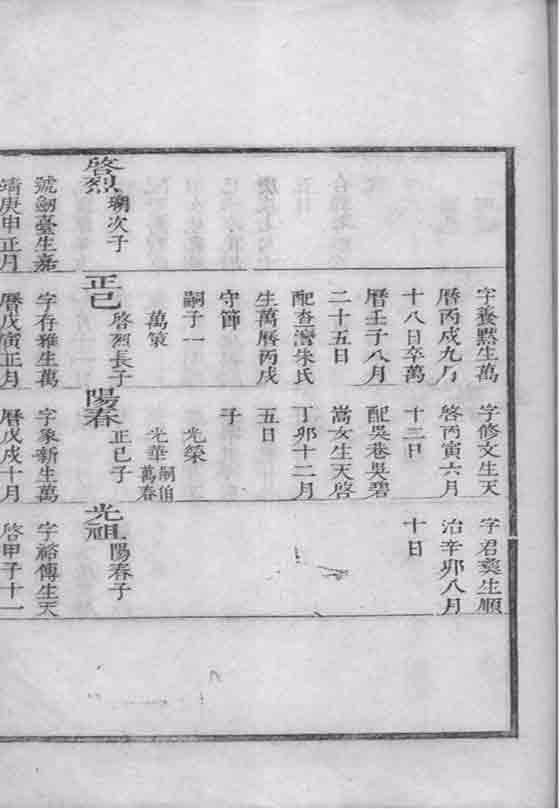 啓烈 瑚次子
號劒臺生嘉
靖庚申正月
字養黙生萬
曆丙戌九月
十八日卒萬
曆壬子八月
二十五日
配查灣朱氏
生萬曆丙戌
守節
嗣子一
萬策
正已 啓烈長子
字存雅生萬
曆戊寅正月
字修文生天
啓丙寅六月
十三日
配吳巷吳碧
嵩女生天啓
丁卯十二月
五日
子
光榮
光華 嗣伯萬春
陽春 正已子
字象新生萬
曆戊戌十月
字君奭生順
治辛卯八月
十日
光祖 陽春子
字裕傳生天
啓甲子十一